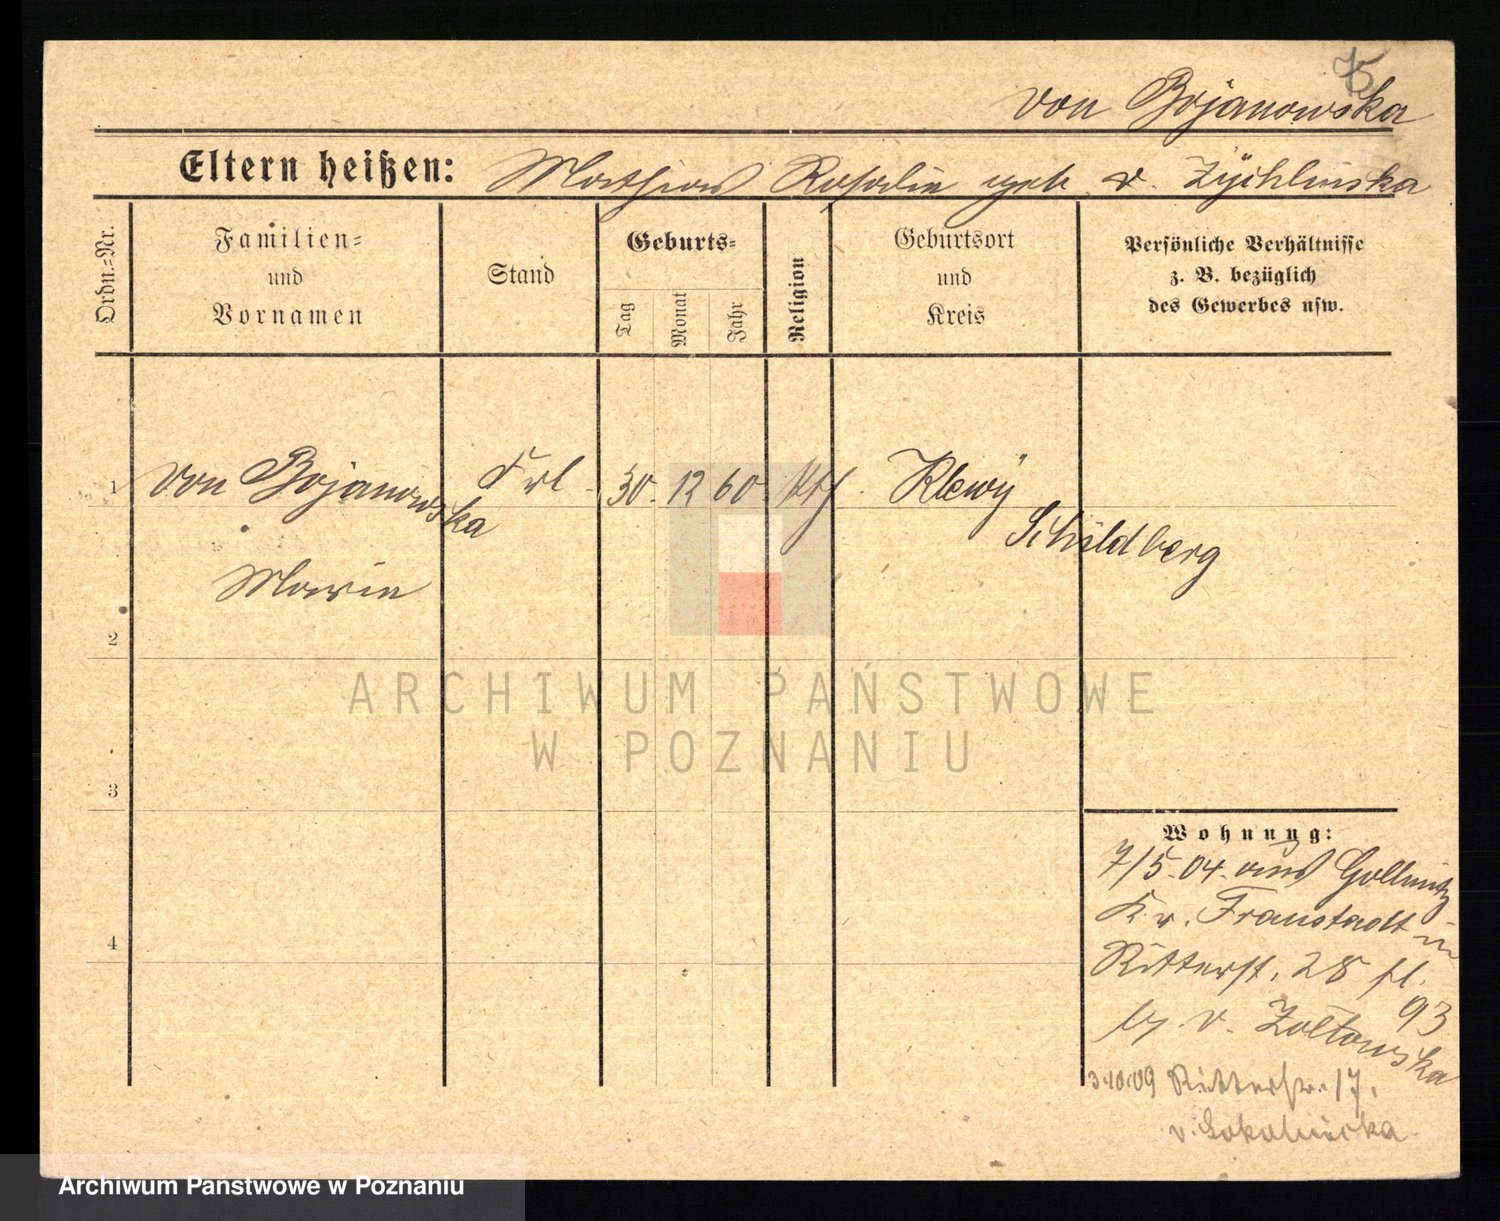 75
von Bojanowska
Eltern heißen: Mathias Rosalie geb. v. Zÿchlinska
Ordn.-Nr.
Familien- und Vornamen
Stand
Geburts-
Tag
Monat
Jahr
Religion
Geburtsort und Kreis
Persönliche Verhältnisse
z. B. bezüglich
des Gewerbes usw.
1 von Bojanowska Frl. 30. 12 60 kth. Klewÿ
Schildberg
Marie
2
ARCHIWUM PAŃSTWOWE
W POZNANIU
3
Wohnung:
7/5.04. aus Gollmitz
Kr. Fraustadt in
Ritterst. 28 fl.
93
by v. Zoltowska
4
3.10.09 Ritterstr. 17.
v. Sokolnicka
Archiwum Państwowe w Poznaniu